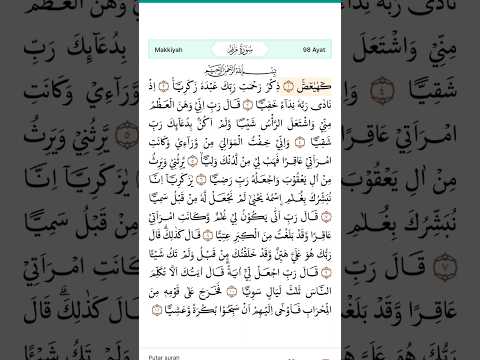 Makkiyah سُوْرَةُ مَرْيَمَ 98 Ayat
بِسْمِ اللّٰهِ الرَّحْمٰنِ الرَّحِيْمِ
كۤهٰيٰعۤصۤ ۚ ١ ذِكْرُ رَحْمَتِ رَبِّكَ عَبْدَهٗ زَكَرِيَّا ۚ ٢ اِذْ
نَادٰى رَبَّهٗ نِدَاۤءً خَفِيًّا ٣ قَالَ رَبِّ اِنِّيْ وَهَنَ الْعَظْمُ
مِنِّيْ وَاشْتَعَلَ الرَّأْسُ شَيْبًا وَّلَمْ اَكُنْۢ بِدُعَاۤىِٕكَ رَبِّ
شَقِيًّا ٤ وَاِنِّيْ خِفْتُ الْمَوَالِيَ مِنْ وَّرَاۤءِيْ وَكَانَتِ
امْرَاَتِيْ عَاقِرًا فَهَبْ لِيْ مِنْ لَّدُنْكَ وَلِيًّا ۙ ٥ يَّرِثُنِيْ وَيَرِثُ
مِنْ اٰلِ يَعْقُوْبَ وَاجْعَلْهُ رَبِّ رَضِيًّا ٦ يٰزَكَرِيَّآ اِنَّا
نُبَشِّرُكَ بِغُلٰمِ اِۨسْمُهٗ يَحْيٰىۙ لَمْ نَجْعَلْ لَّهٗ مِنْ قَبْلُ سَمِيًّا
٧ قَالَ رَبِّ اَنّٰى يَكُوْنُ لِيْ غُلٰمٌ وَّكَانَتِ امْرَاَتِيْ
عَاقِرًا وَّقَدْ بَلَغْتُ مِنَ الْكِبَرِ عِتِيًّا ٨ قَالَ كَذٰلِكَۚ قَالَ
رَبُّكَ هُوَ عَلَيَّ هَيِّنٌ وَّقَدْ خَلَقْتُكَ مِنْ قَبْلُ وَلَمْ تَكُ شَيْـًٔا
٩ قَالَ رَبِّ اجْعَلْ لِّيْٓ اٰيَةً ۗقَالَ اٰيَتُكَ اَلَّا تُكَلِّمَ
النَّاسَ ثَلٰثَ لَيَالٍ سَوِيًّا ١٠ فَخَرَجَ عَلٰى قَوْمِهٖ مِنَ
الْمِحْرَابِ فَاَوْحٰٓى اِلَيْهِمْ اَنْ سَبِّحُوْا بُكْرَةً وَّعَشِيًّا ١١
Putar surah